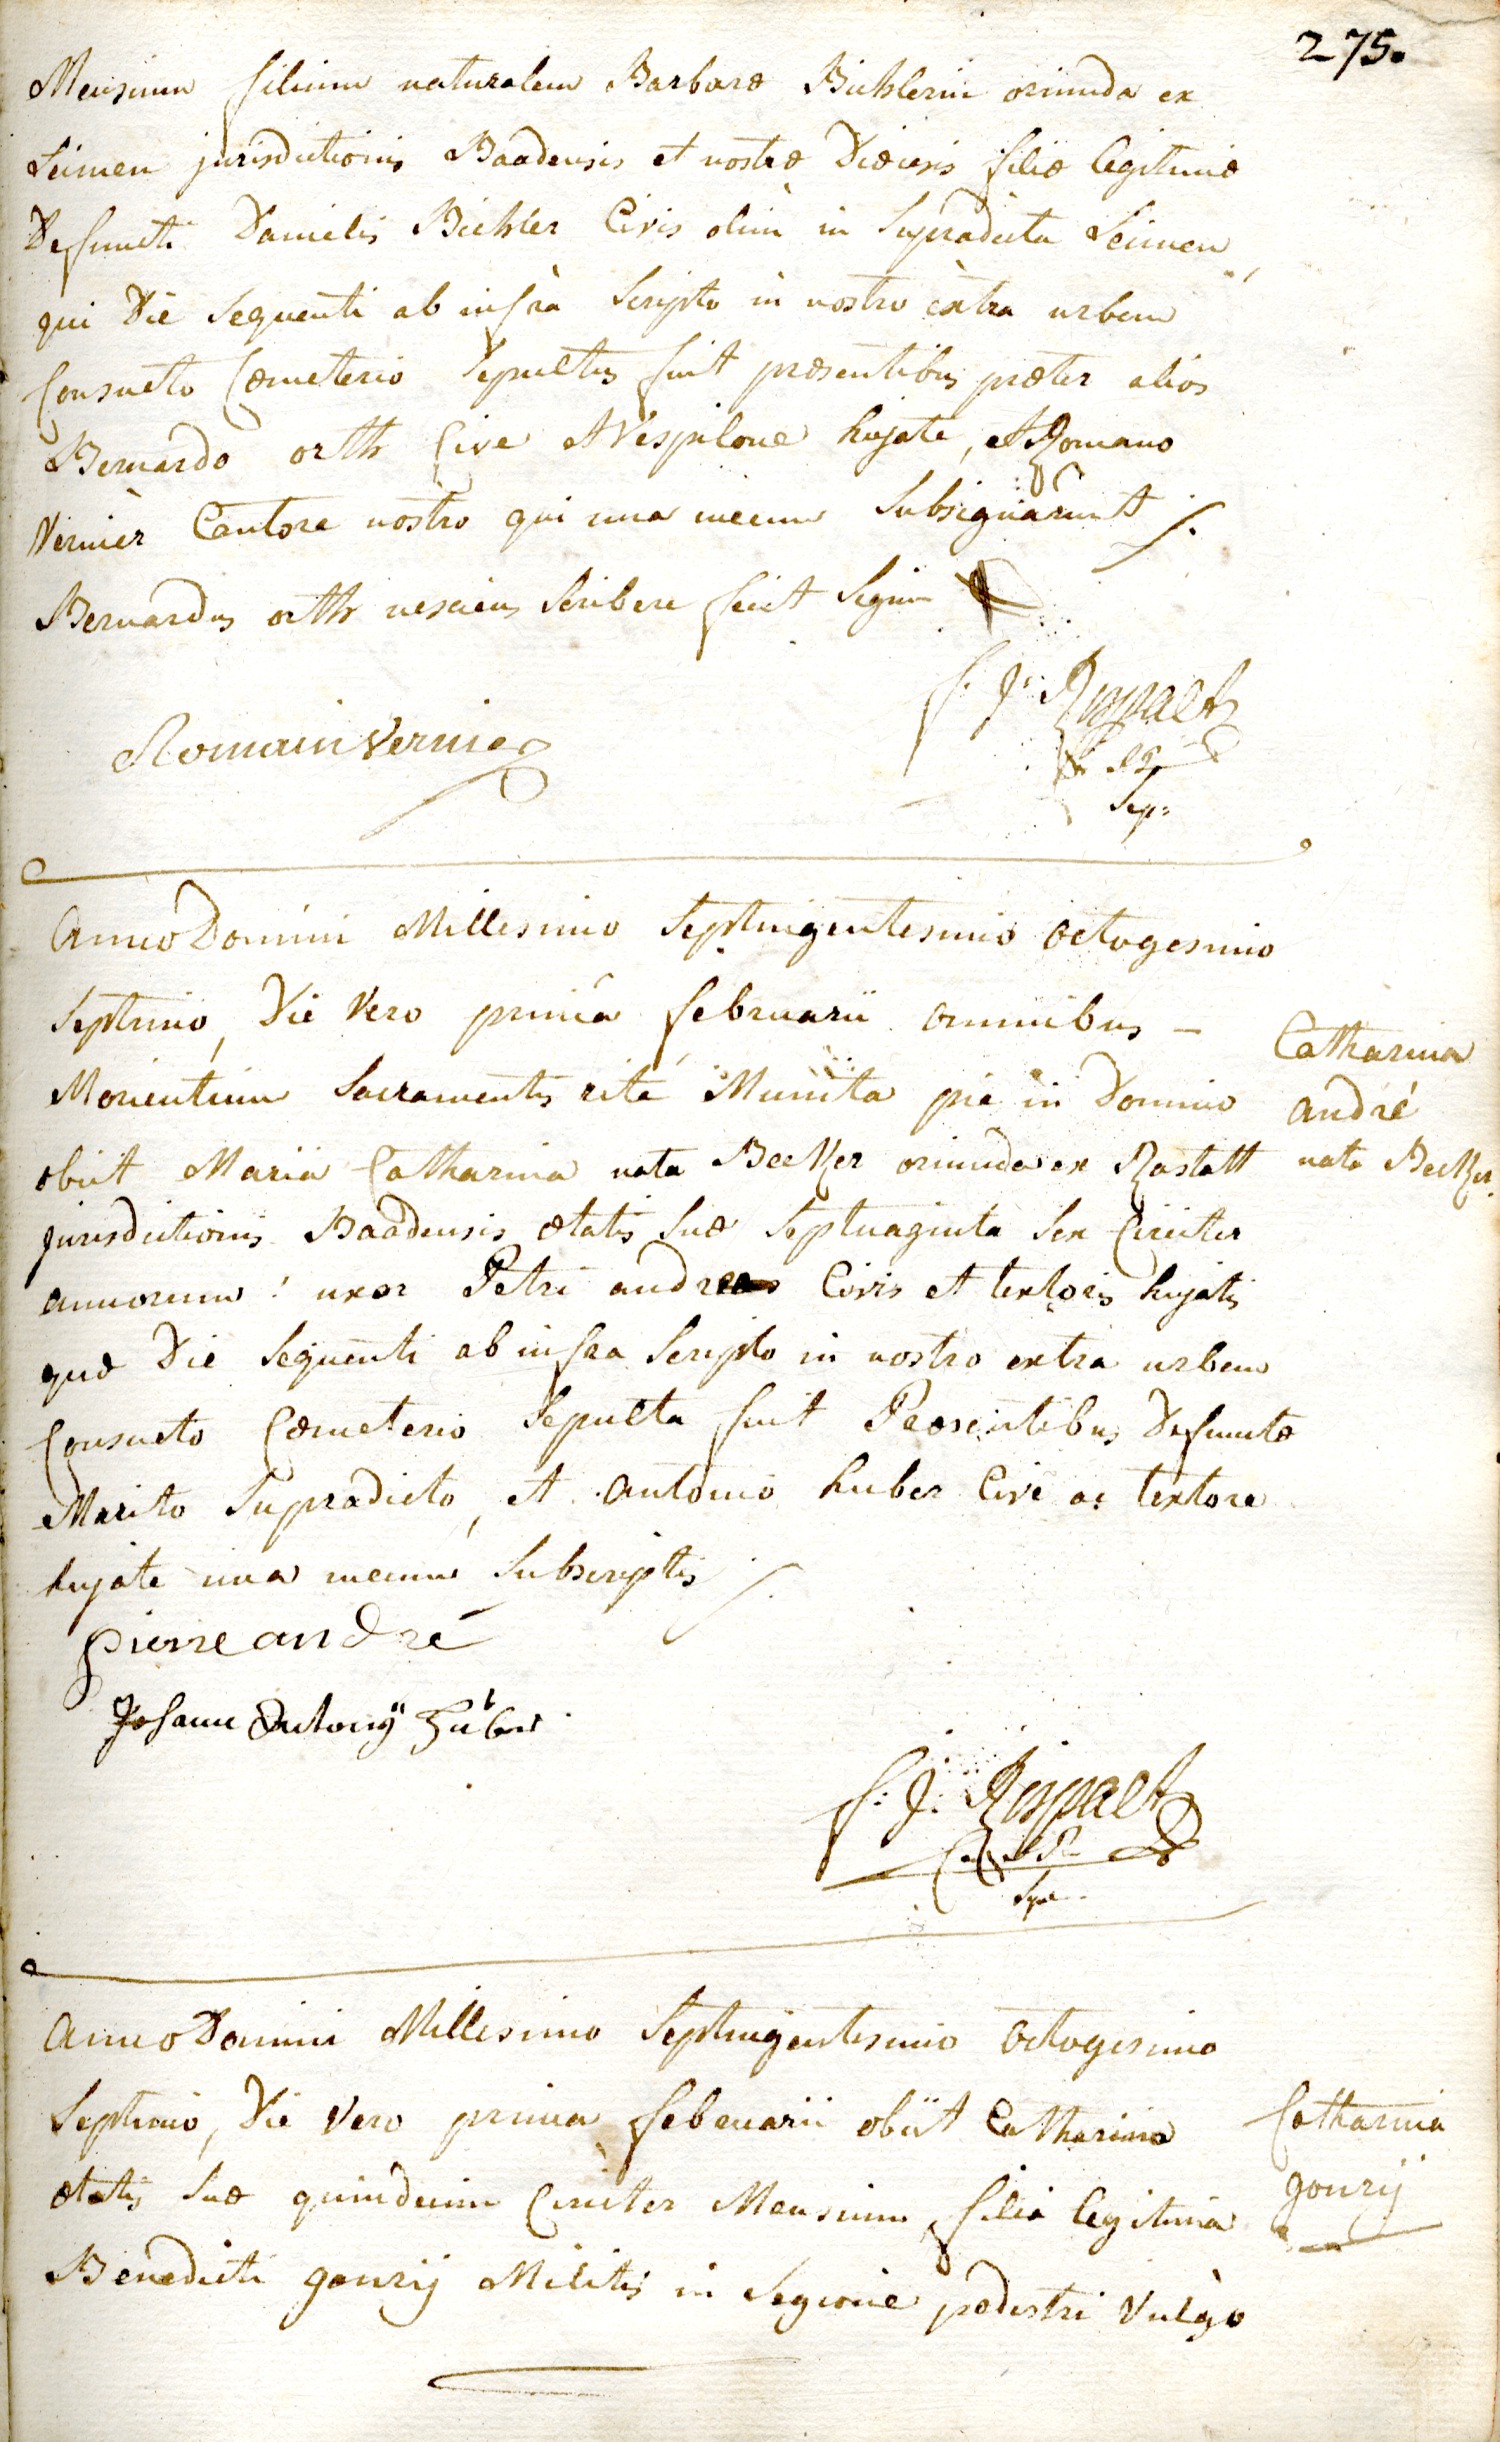 275.
Mensium filium naturalem Barbaræ Bichlerin oriunda ex
Leimen jurisdictionis Baadensis et nostræ Diœcesis filiæ legitimæ
Defuncti Danielis Bichler Civis olim in supradicta Leimen,
qui Die sequenti ab infrà scripto in nostro extra urbem
Consueto Cœmeterio sepultus fuit præsentibus præter alios
Bernardo orth Cive et Vespilone hujate, et Romano
Vernier Cantore nostro qui una mecum subsignârunt
Bernardus orth nesciens scribere fecit signum
Romain Vernier
f. J: Rispalt
Anno Domini Millesimo septingentesimo octogesimo
septimo, Die Vero primâ februarii omnibus –
Morientium sacramentis rite Munita pie in Domino
obiit Maria Catharina nata Becker oriunda ex Rastatt
jurisdictionis Baadensis ætatis suæ septuaginta sex Circiter
annorum : uxor Petri andre Civis et textoris hujatis
quæ Die sequenti ab infra scripto in nostro extra urbem
Consueto Cœmeterio sepulta fuit Præsentibus Defunctæ
Marito supradicto, et Antonio huber Cive ac textore
hujate una mecum subscriptis
Catharina
André
nata Becker
pierre andré
Johann Antonÿ Huber
f: J: Rispalt
Anno Domini Millesimo septingentesimo octogesimo
septimo, Die Vero prima februarii obiit Catharina
ætatis suæ quindecim Circiter Mensium filia legitima
Benedicti gonrij Militis in Legione pedestri Vulgo
Catharina
gonrij